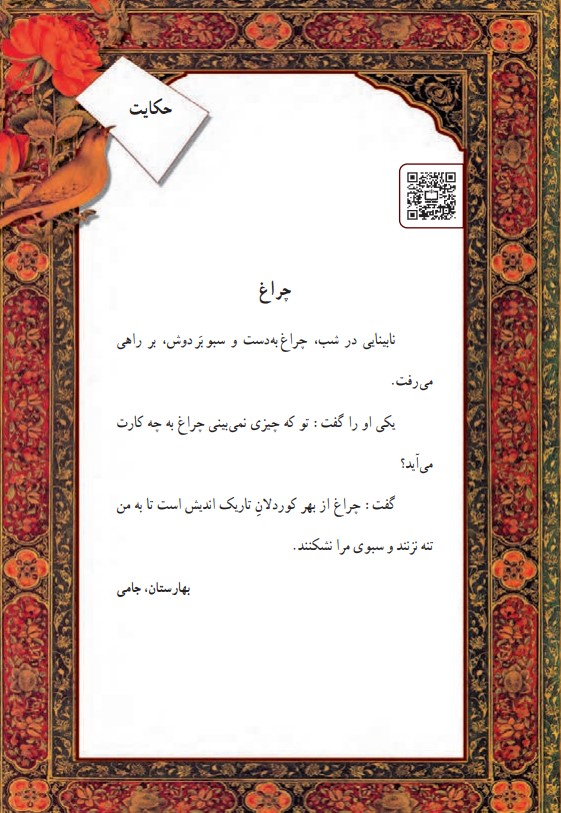 حکایت
چراغ
نابینایی در شب، چراغ به‌دست و سبو بَر دوش، بر راهی
می‌رفت.
یکی او را گفت : تو که چیزی نمی‌بینی چراغ به چه کارت
می‌آید؟
گفت : چراغ از بهر کوردلانِ تاریک اندیش است تا به من
تنه نزنند و سبوی مرا نشکنند.
بهارستان، جامی